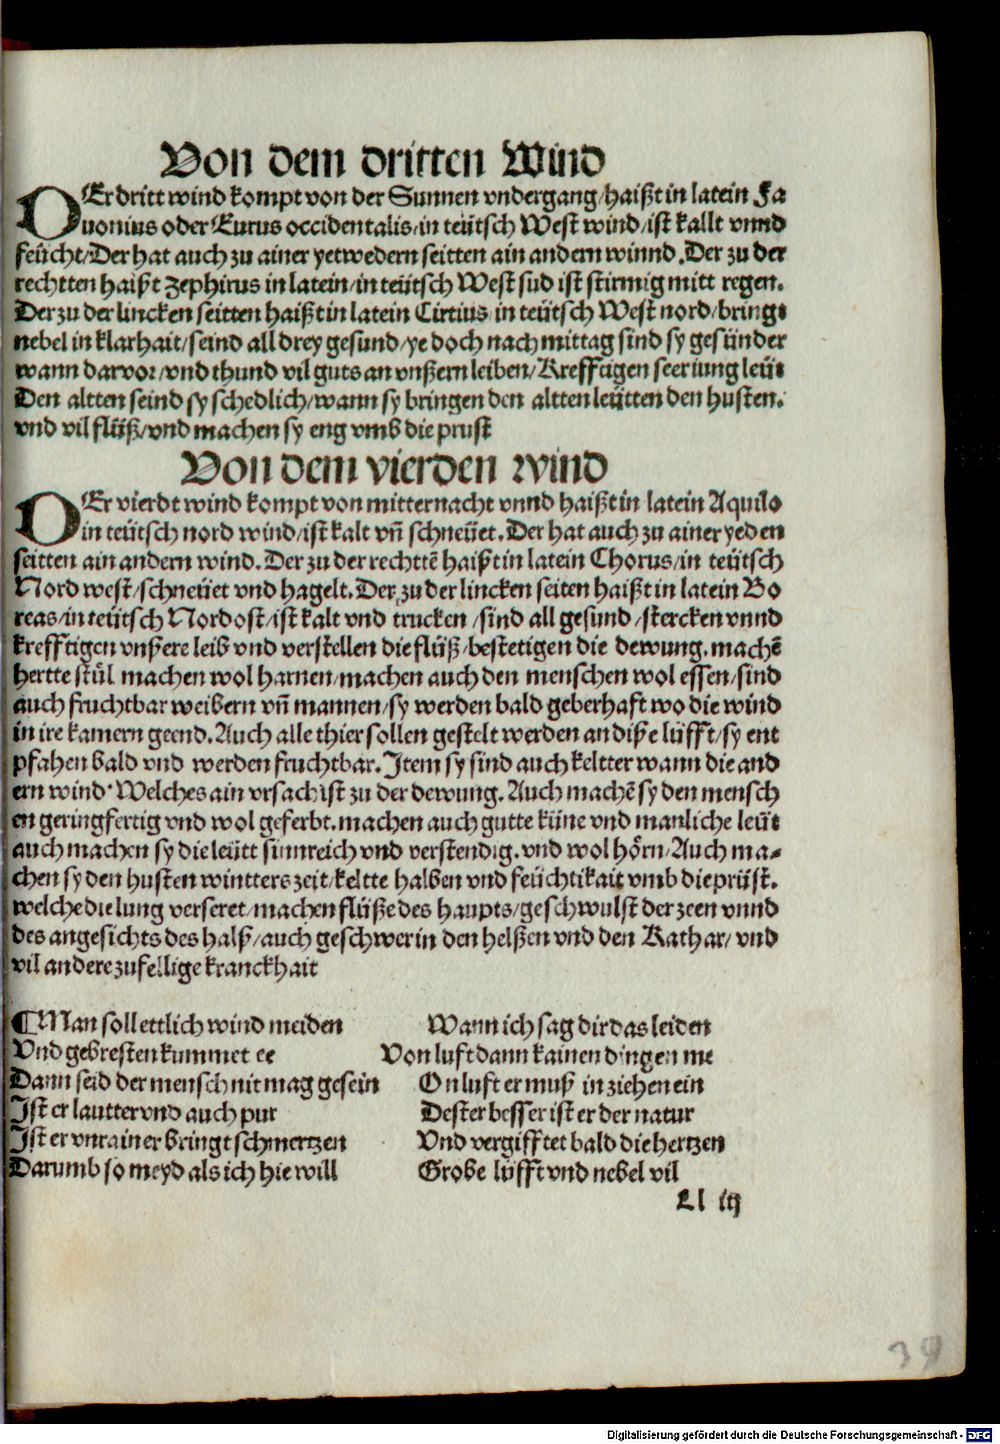 Von dem dritten Wind
DEr dritt wind kompt von der Sunnen vndergang/haißt in latein Fa
uonius oder Eurus occidentalis/in teütsch West wind/ist kallt vnnd
feücht/Der hat auch zu ainer yetwedern seitten ain andern winnd. Der zu der
rechtten haißt Zephirus in latein/in teütsch West sud ist stirmig mitt regen.
Der zu der lincken seitten haißt in latein Cirtius/in teütsch West nord/bringt
nebel in klarhait/seind all drey gesund/ye doch nach mittag sind sy gesünder
wann darvor/vnd thund vil guts an vnßern leiben/Kreffügen seer iung leüt
Den altten seind sy schedlich/wann sy bringen den altten leütten den husten.
vnd vil flüß/vnd machen sy eng vmb die prust
Von dem vierden wind
DEr vierdt wind kompt von mitternacht vnnd haißt in latein Aquilo
in teütsch nord wind/ist kalt vñ schneüet. Der hat auch zu ainer yeden
seitten ain andern wind. Der zu der rechttē haißt in latein Chorus/in teütsch
Nord west/schneüet vnd hagelt. Der zu der lincken seiten haißt in latein Bo
reas/in teütsch Nordost/ist kalt vnd trucken/sind all gesund/stercken vnnd
krefftigen vnßere leib vnd verstellen die flüß/bestetigen die dewung. machē
hertte stül machen wol harnen/machen auch den menschen wol essen/sind
auch fruchtbar weibern vñ mannen/sy werden bald geberhaft wo die wind
in ire kamern geend. Auch alle thier sollen gestelt werden an diße lüfft/sy ent
pfahen bald vnd werden fruchtbar. Item sy sind auch keltter wann die and
ern wind. Welches ain vrsach ist zu der dewung. Auch machē sy den mensch
en geringfertig vnd wol geferbt. machen auch gutte küne vnd manliche leüt
auch machen sy die leütt sinnreich vnd verstendig. vnd wol hörn/Auch ma-
chen sy den husten wintters zeit/keltte halben vnd feüchtikait vmb die prüst.
welche die lung verseret/machen flüße des haupts/geschwulst der zeen vnnd
des angesichts des halß/auch geschwer in den helßen vnd den Kathar/vnd
vil andere zufellige kranckhait
¶Man soll ettlich wind meiden Wann ich sag dir das leiden
Vnd gebresten kummet ee Von luft dann kainen dingen me
Dann seid der mensch nit mag gesein On luft er muß in ziehen ein
Ist er lautter vnd auch pur Dester besser ist er der natur
Ist er vnrainer bringt schmertzen Vnd vergifftet bald die hertzen
Darumb so meyd als ich hie will Grobe lüfft vnd nebel vil
Ll iij
39
Digitalisierung gefördert durch die Deutsche Forschungsgemeinschaft - DFG